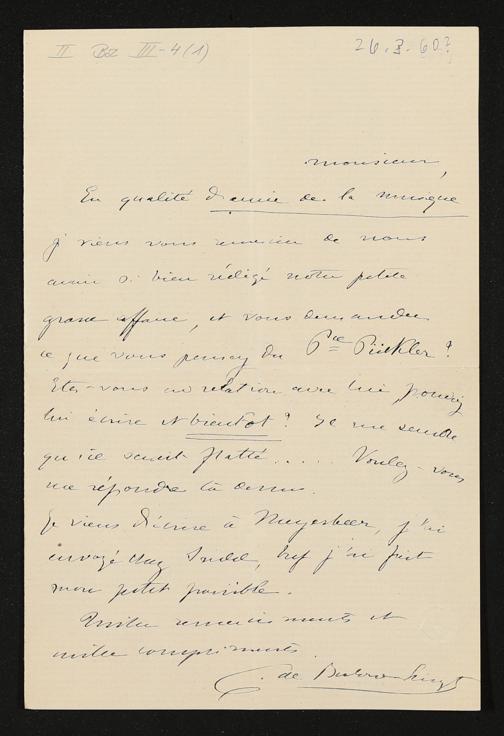 II Boz III-4(1) 26.3.60?
monsieur,
En qualité d'amie de la musique
je viens vous remercier de nous
avoir si bien rédigé notre petite
grave affaire, et vous demander
ce que vous pensez du Pce Pückler?
Etes-vous en relation avec lui pouvez
lui écrire et bientot? Il me semble
qu'il serait flatté.... Voulez-vous
me répondre là dessus.
Je viens d'écrire à Meyerbeer, j'ai
envoyé chez, bref j'ai fait
mon petit possible.
Mille remerciements et
mille compliments.
C. de Bulow-Liszt